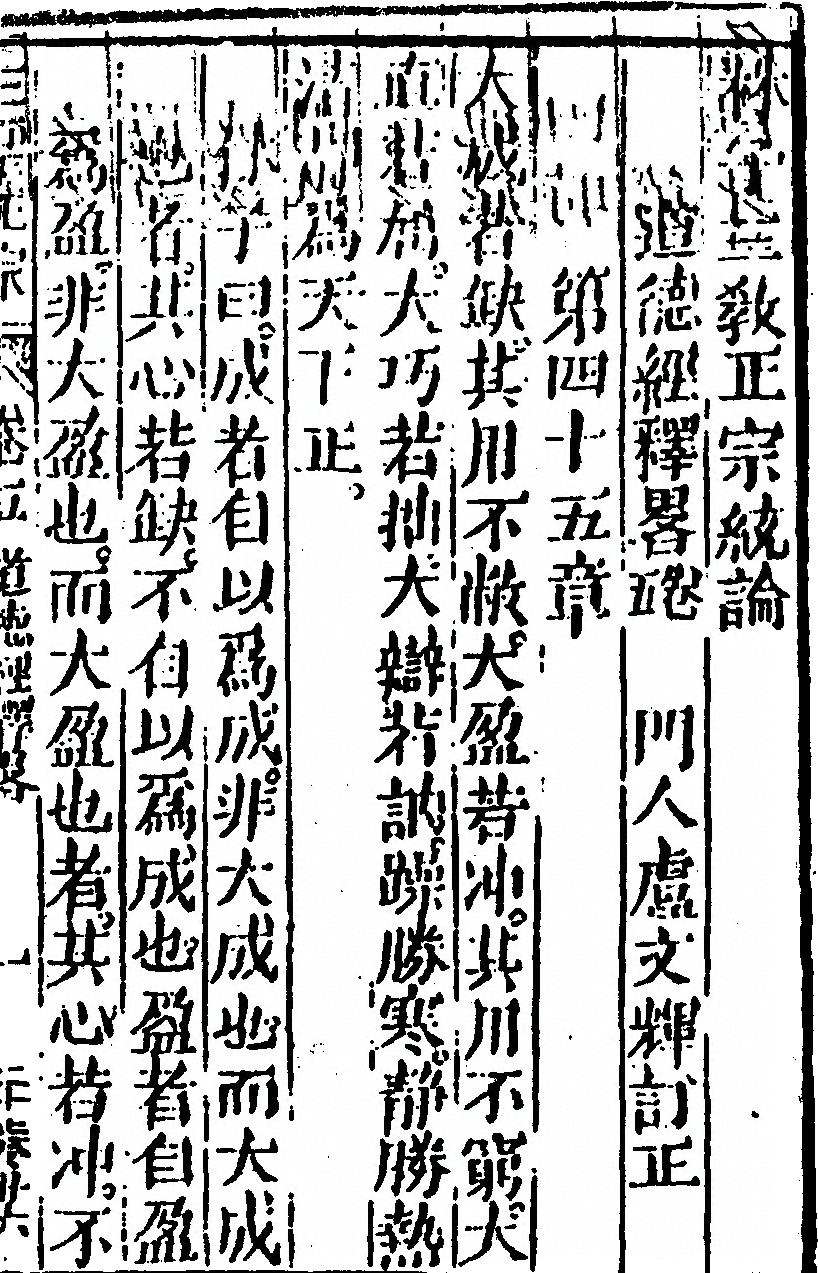 林子三教正宗統論
道德經釋畧碼　門人盧文輝訂正
第四十五章
大成若缺其用不敝大盈若沖其用不窮大
直若屈大巧若拙大辯若訥躁勝寒靜勝熱
清靜爲天下正
林子曰成者自以爲成非大成也而大成
也者其心若缺不自以爲成也盈者自盈
爲盈非大盈也而大盈也者其心若沖不